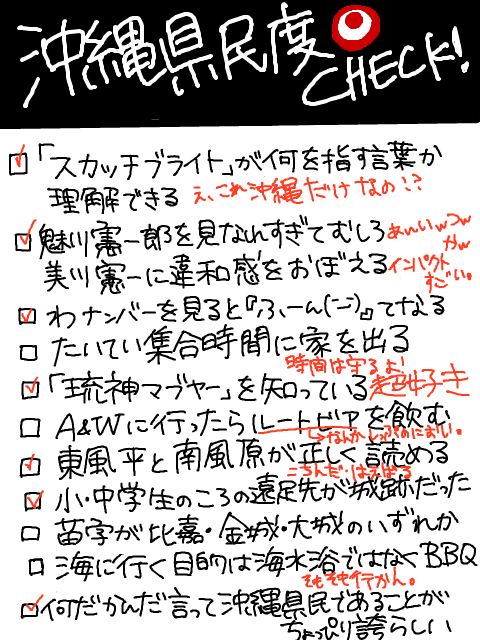 沖縄県民度
CHECK!
「スカッチブライト」が何を指す言葉か
理解できる え、これ沖縄だけなの!?
魅川憲一郎を見なれすぎてむしろ
美川憲一に違和感をおぼえる
インパクト
すごい。
わナンバーを見ると『ふーん(ーー)』てなる
たいてい集合時間に家を出る
時間は守るよ!
「琉神マブヤー」を知っている 超好き
A&Wに行ったらルートビアを飲む
なんかしっぷのにおい。
東風平と南風原が正しく読める
こちんだ・はえばる
小・中学生のころの遠足先が城跡だった
苗字が比嘉・金城・大城のいずれか
海に行く目的は海水浴ではなくBBQ
そもそも行かん。
何だかんだ言って沖縄県民であることが
ちょっぴり誇らしい